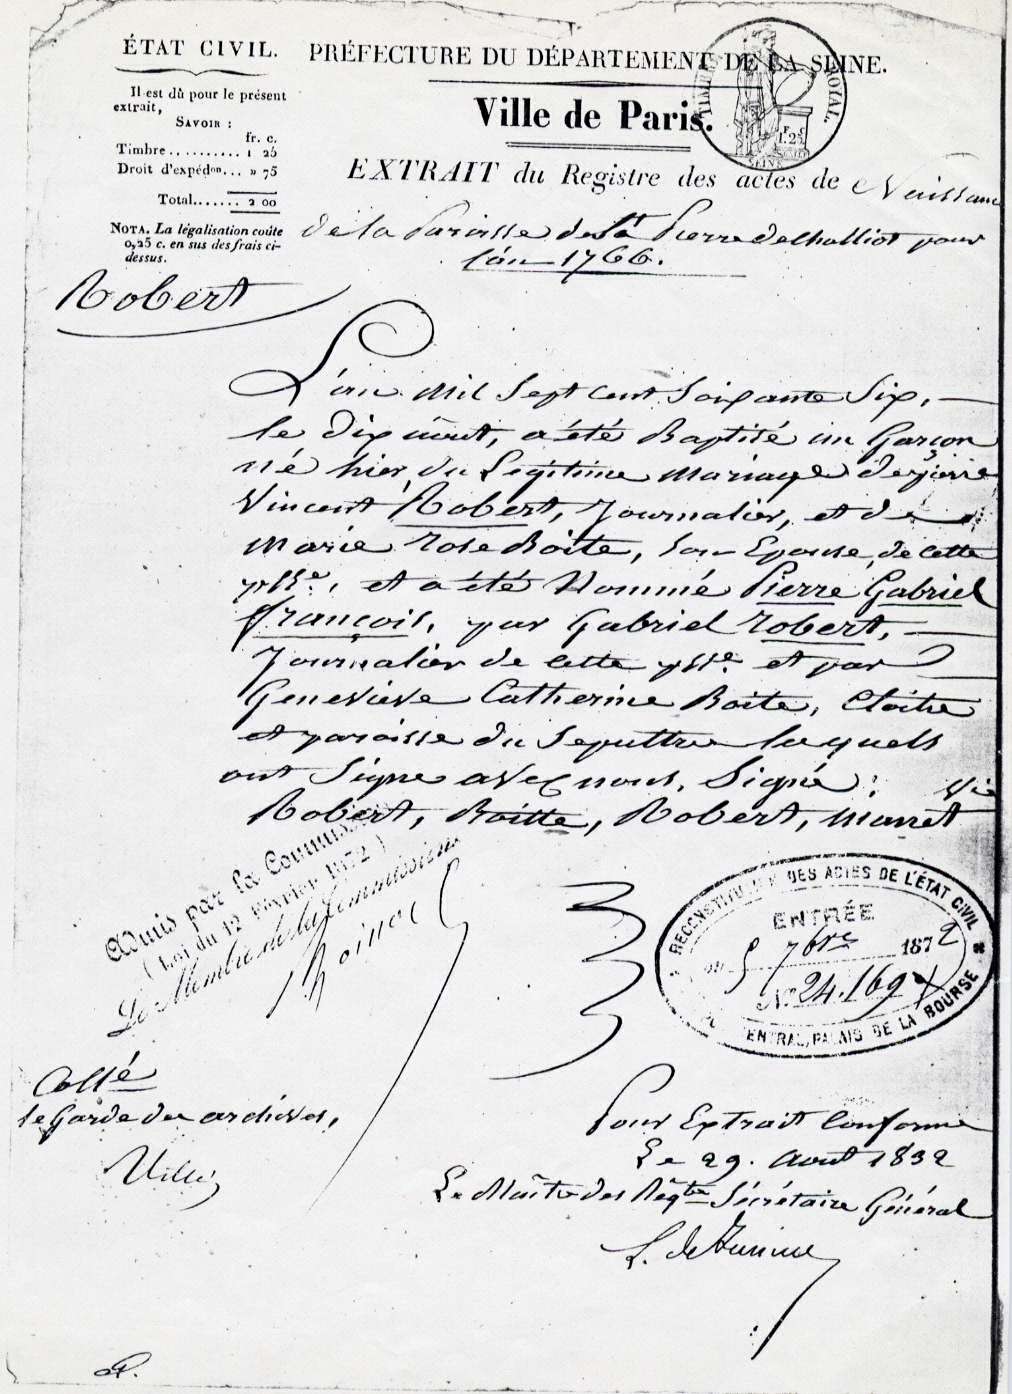 ÉTAT CIVIL.
Il est dû pour le présent
extrait,
SAVOIR :
fr. c.
Timbre.......... 1 25
Droit d'expédon... » 75
Total...... 2 00
NOTA. La légalisation coûte
0,25 c. en sus des frais ci-
dessus.
PRÉFECTURE DU DÉPARTEMENT DE LA SEINE.
Ville de Paris.
TIMBRE ROYAL.
1F. 25c
SEINE
EXTRAIT du Registre des actes de Naissance
de la Paroisse de St Pierre de Challiot pour
l'an 1766.
Robert
L'an Mil Sept Cent Soixante Six,
le dix août, a été Baptisé un Garçon
né hier, du Légitime Mariage de pierre
Vincent Robert, Journalier, et de
Marie Rose Boite, Son Epouse, de cette
psse, et a été Nommé Pierre Gabriel
françois, par Gabriel robert,
Journalier de cette psse et par
Geneviève Catherine Boite, Cloitre
et paroisse du Sepultre lequels
ont Signe avec nous, Signé :
Robert, Boitte, Robert, Marret Vic
Admis par la Commission
(Loi du 12 Février 1872)
Le Membre de la Commission
RECONSTITUTION DES ACTES DE L'ÉTAT CIVIL
ENTRÉE
du 5 7bre 1872
No 24.169
CENTRAL, PALAIS DE LA BOURSE
Collé
le Garde des archives,
Pour Extrait Conforme
Le 29. Aout 1832
Le Maître des Reqtes Sécrétaire Général